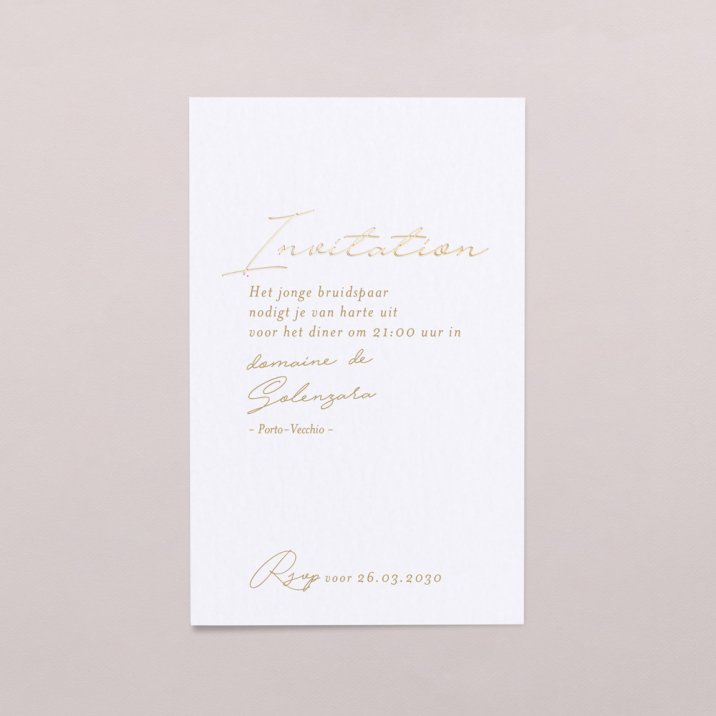 Invitation
Het jonge bruidspaar
nodigt je van harte uit
voor het diner om 21:00 uur in
domaine de
Solenzara
- Porto-Vecchio -
Rsvp voor 26.03.2030